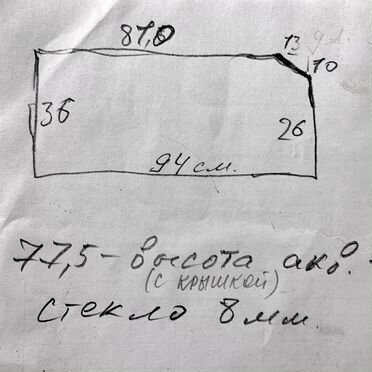 81,0
13
10
36
26
94 см.
77,5 - высота акв.
(с крышкой)
стекло 8 мм.